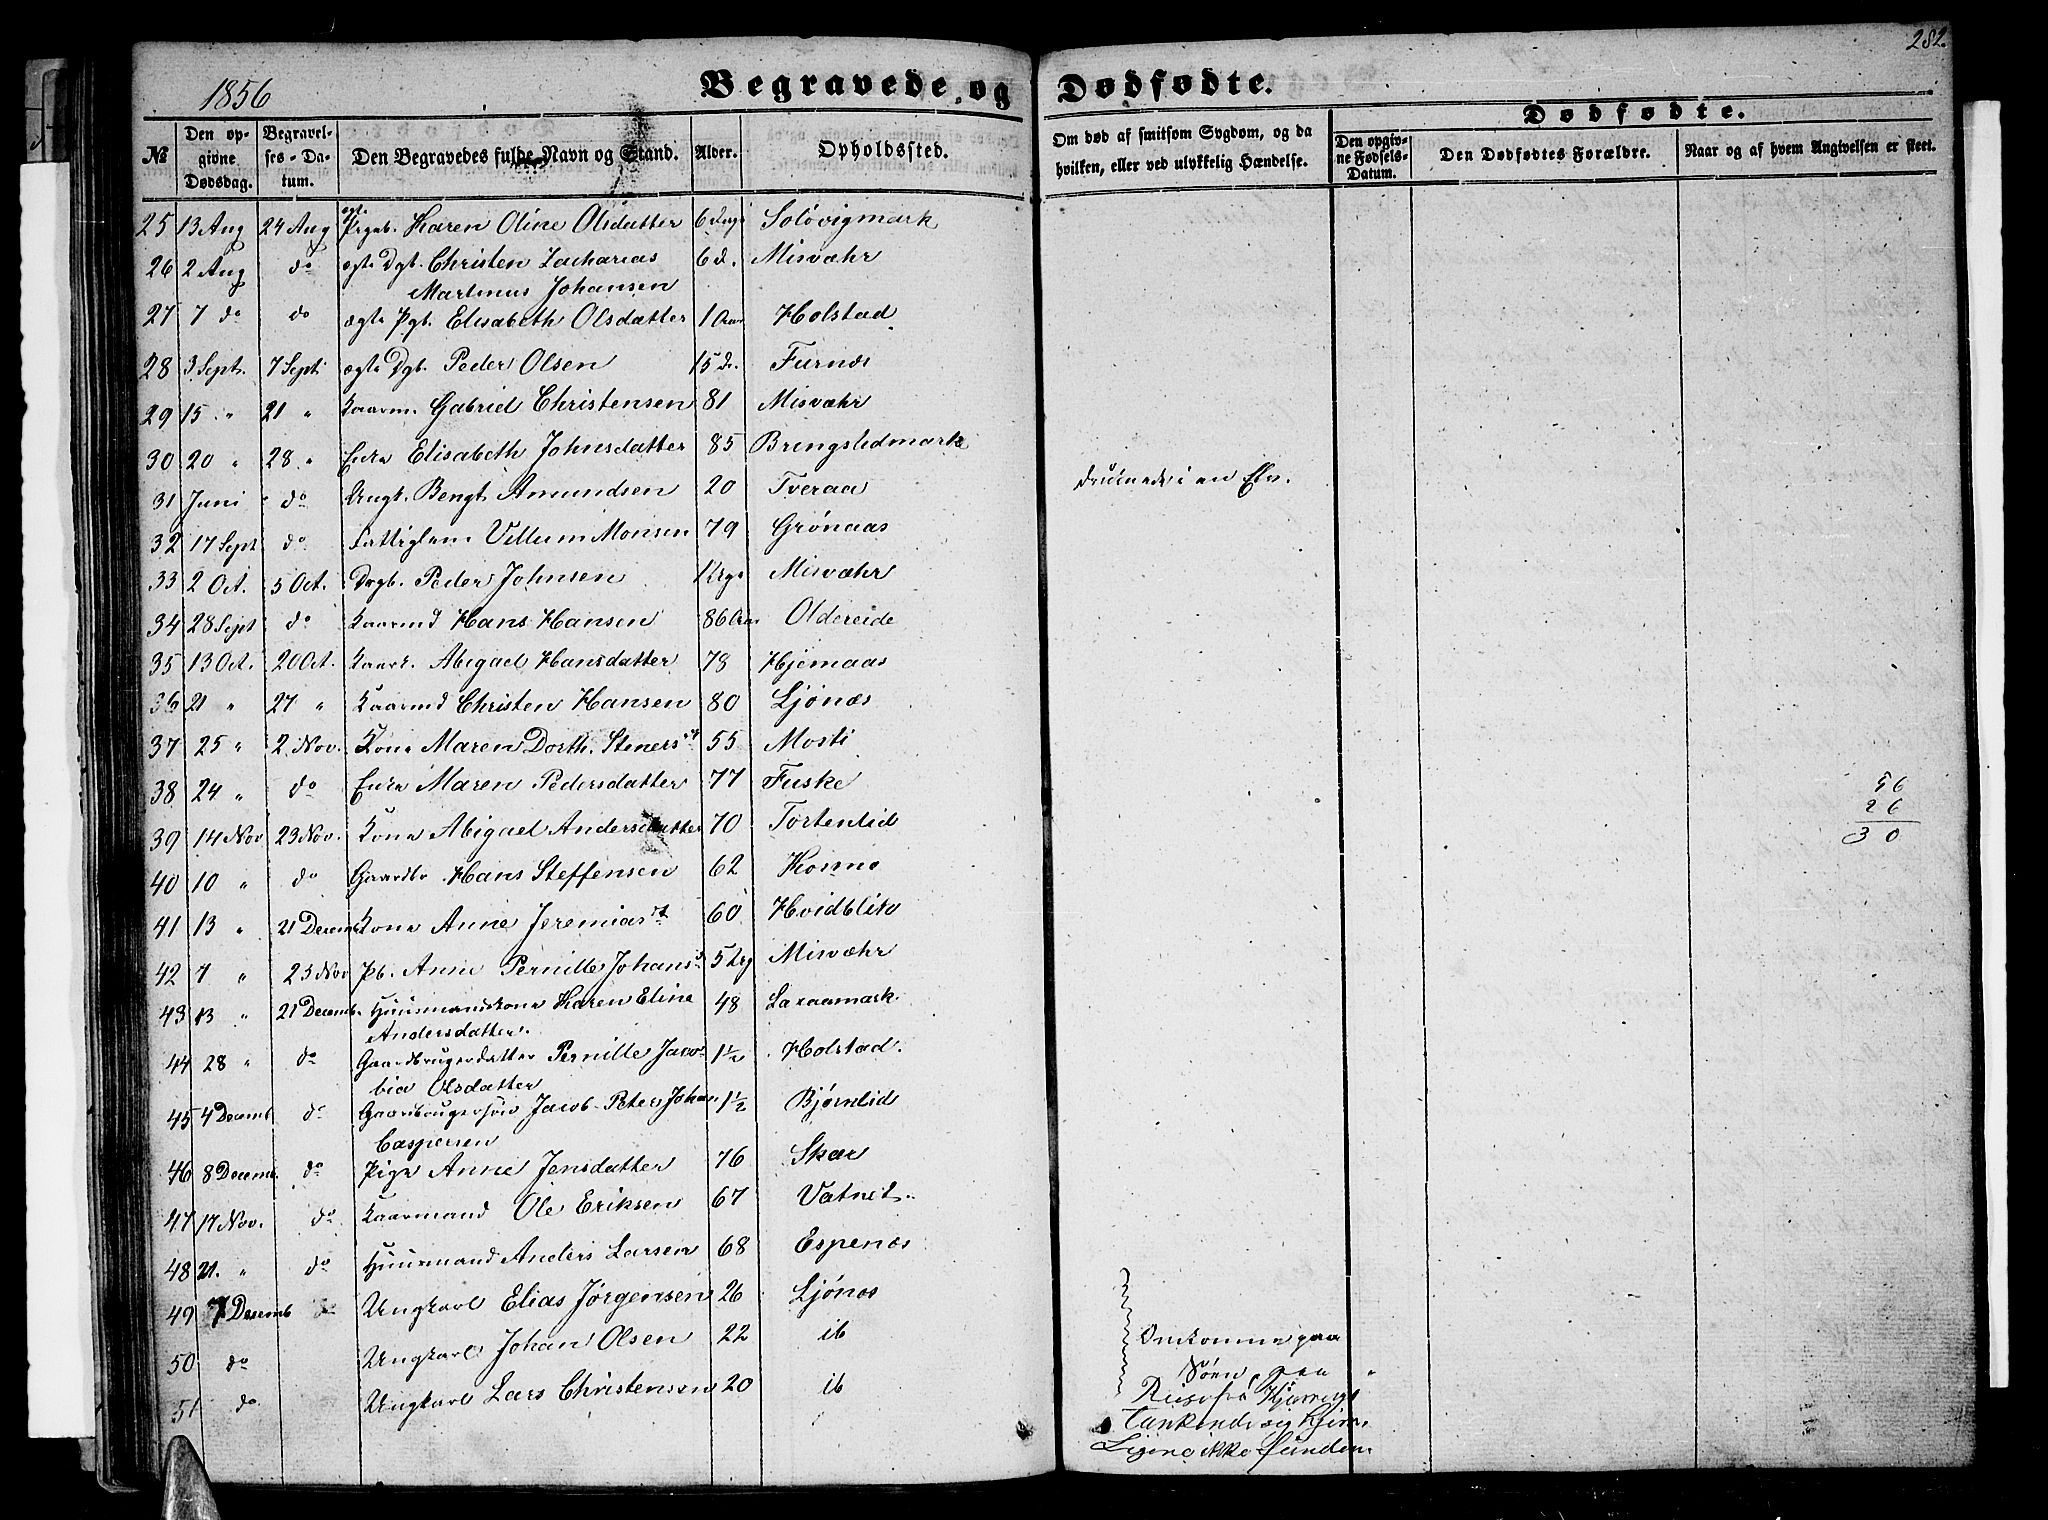 282.
1856
Begravede og Dødfødte.
Dødfødte.
№
Den opgivne Dødsdag.
Begravelses-Datum.
Den Begravedes fulde Navn og Stand.
Alder.
Opholdssted.
Om død af smitsom Sygdom, og da hvilken, eller ved ulykkelig Hændelse.
Den opgivne Fødsels-Datum.
Den Dødfødtes Forældre.
Naar og af hvem Angivelsen er skeet.
25 13 Aug 24 Aug ægte Pigeb. Karen Oline Olsdatter 6 Dage Soløvigmark
26 2 Aug do ægte Dgb. Christen Zacharias 6 d. Misvæhr
Martinus Johansen
27 7 do do ægte Pgb. Elisabeth Olsdatter 1 Aar Holstad
28 3 Sept. 7 Sept ægte Dgb. Peder Olsen 15 D. Furnæs
29 15 " 21 " Kaarm. Gabriel Christensen 81 Misvæhr
30 20 " 28 " Enke Elisabeth Johnsdatter 85 Bringslidmark
31 Juni do Ungk. Bengt Amundsen 20 Tveraa druknede i en Elv.
32 17 Sept do Fattiglem Villum Monsen 79 Grønaas
33 2 Oct. 5 Oct. Drgb. Peder Johnsen Misvæhr
34 28 Sept do Kaarmd Hans Hansen 86 Aar Oldereide
35 13 Oct. 20 Oct. Kaark. Abigael Hansdatter 78 Hjemaas
36 21 " 27 " Kaarmd Christen Hansen 80 Ljønæs
37 25 " 2 Nov. Kone Maren Dorth. Steners dt 55 Mosti
38 24 " do Enke Maren Pedersdatter 77 Fuske 56
26
39 14 Nov 23 Nov. Kone Abigael Andersdatter 70 Tortenlid 30
40 10 " do Gaardbr Hans Steffensen 62 Kosmo
41 13 " 21 Decemb Kone Anne Jeremias dt 60 Hvidblik
42 7 " 23 Nov Pb. Anne Pernille Johans d. Misvæhr
43 13 " 21 Decemb. Huusmandskone Karen Eline 48 Laxaamark.
Andersdatter.
44 28 " do Gaardbrugerdatter Pernille Jaco- 1½ Holstad.
bia Olsdatter
45 4 Decemb do Gaardbrugersøn Jacob Peter Johan 1½ Bjørnlid
Caspersen
46 8 Decemb. do Pige Anne Jensdatter 76 Skar
47 17 Nov. do Kaarmand Ole Eriksen 67 Vatnet.
48 21. " do Huusmand Anders Larsen 68 Espenæs
49 7 Decemb do Ungkarl Elias Jørgensen 26 Ljønæs
50 do Ungkarl Johan Olsen 22 ib Omkomne paa
Søen, paa
51 do Ungkarl Lars Christensen 20 ib Reise fra
Ligene ikke funden.